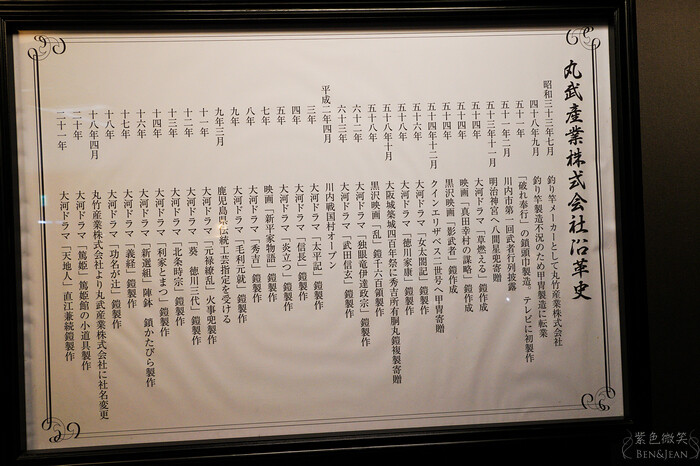 丸武産業株式会社沿革史
昭和三十三年七月 釣り竿メーカーとして丸竹産業株式会社
四十八年九月 釣り竿製造不況のため甲冑製造に転業
五十一年 「破れ奉行」の鎖頭巾製造。テレビに初製作
五十一年二月 川内市第一回武者行列披露
五十三年十一月 明治神宮へ八間星兜寄贈
五十四年 大河ドラマ「草燃える」鎧作成
五十四年 映画「真田幸村の謀略」鎧作成
五十四年 黒沢映画「影武者」鎧作成
五十四年十二月 クインエリザベス二世号へ甲冑寄贈
五十六年 大河ドラマ「女太閤記」鎧製作
五十八年 大河ドラマ「徳川家康」鎧製作
五十八年十月 大阪城築城四百年祭に秀吉所有胴丸鎧複製寄贈
五十八年 黒沢映画「乱」鎧千六百領製作
六十二年 大河ドラマ「独眼竜伊達政宗」鎧製作
六十三年 大河ドラマ「武田信玄」鎧製作
平成二年四月 川内戦国村オープン
三年 大河ドラマ「太平記」鎧製作
四年 大河ドラマ「信長」鎧製作
五年 大河ドラマ「炎立つ」鎧製作
七年 映画「新平家物語」鎧製作
八年 大河ドラマ「秀吉」鎧製作
九年 大河ドラマ「毛利元就」鎧製作
九年三月 鹿児島県伝統工芸指定を受ける
十一年 大河ドラマ「元禄繚乱」火事兜製作
十二年 大河ドラマ「葵 徳川三代」鎧製作
十三年 大河ドラマ「北条時宗」鎧製作
十四年 大河ドラマ「利家とまつ」鎧製作
十六年 大河ドラマ「新選組」陣鉢 鎖かたびら製作
十七年 大河ドラマ「義経」鎧製作
十八年 大河ドラマ「功名が辻」鎧製作
十八年四月 丸竹産業株式会社より丸武産業株式会社に社名変更
二十年 大河ドラマ「篤姫」篤姫館の小道具製作
二十一年 大河ドラマ「天地人」直江兼続鎧製作
紫色微笑
BEN&JEAN